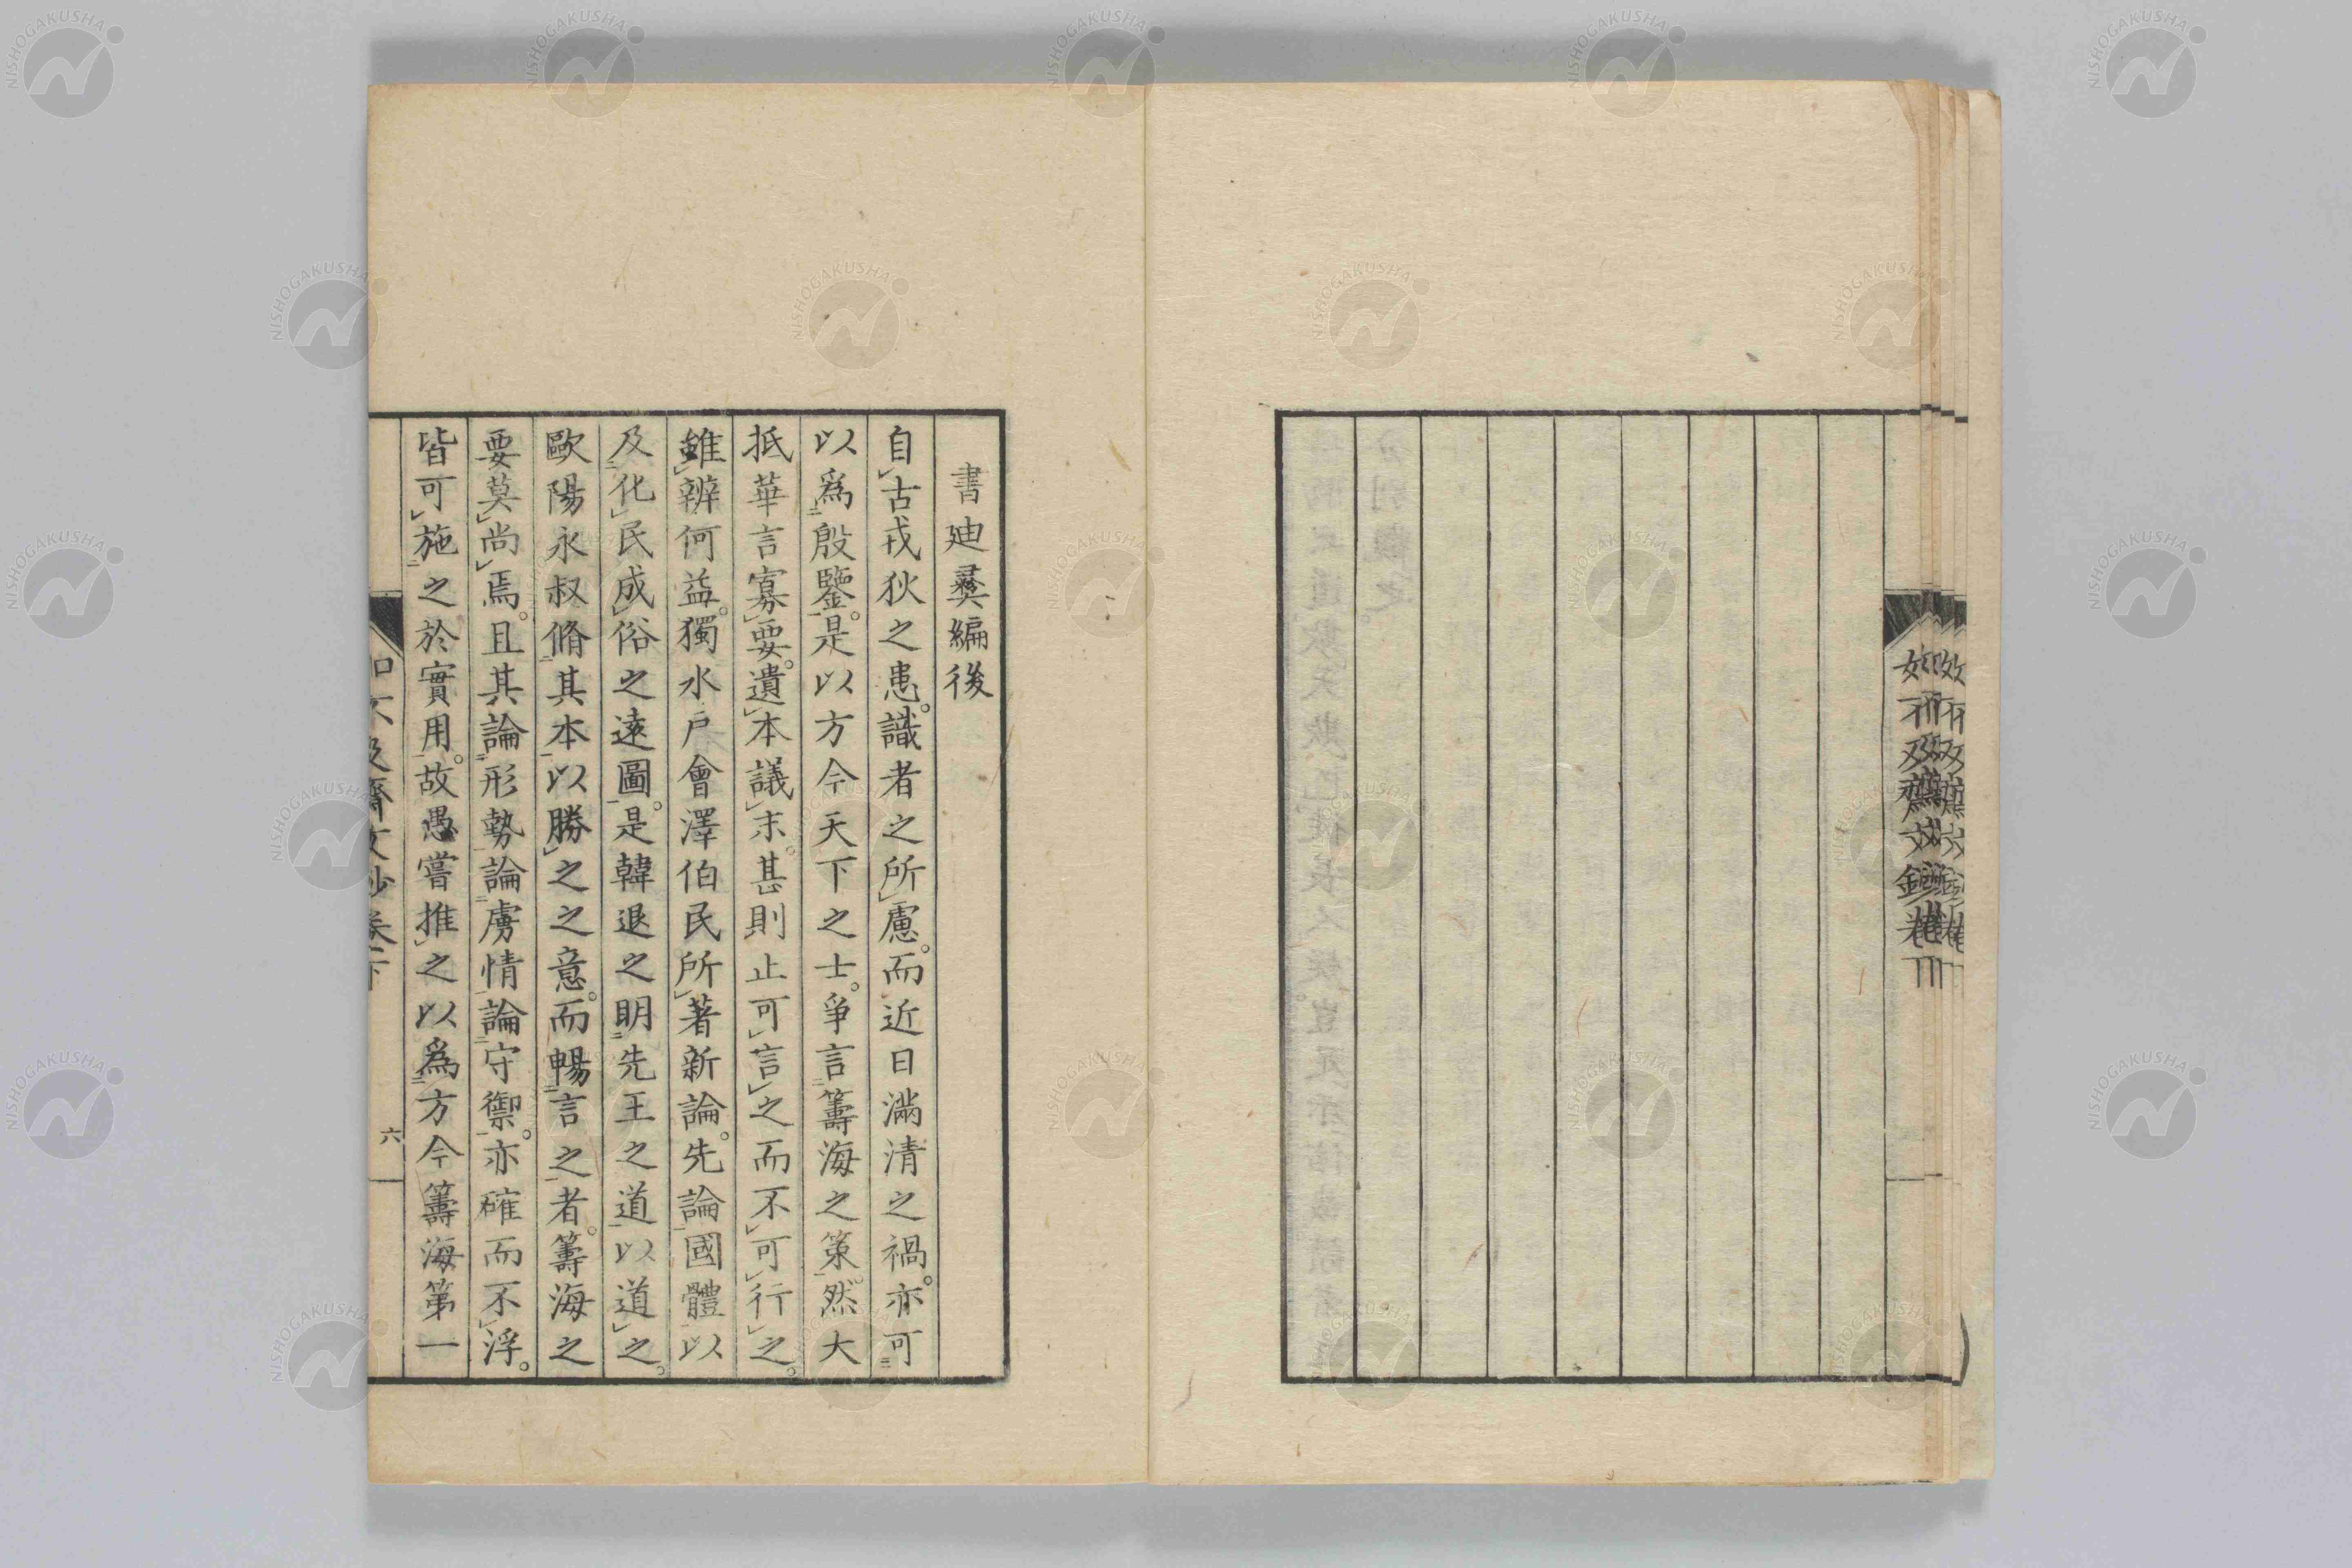 書迪彜編後
自古戎狄之患。識者之所慮。而近日滿清之禍。亦可
以爲殷鑒。是以方今天下之士。爭言籌海之策。然大
抵華言寡要。遺本議末。甚則止可言之而不可行之。
雖辨何益。獨水戶會澤伯民所著新論。先論國體以
及化民成俗之遠圖。是韓退之明先王之道以道之。
歐陽永叔脩其本以勝之之意。而暢言之者。籌海之
要莫尚焉。且其論形勢論虜情論守禦。亦確而不浮。
皆可施之於實用。故愚嘗推之以爲方今籌海第一
六
NISHOGAKUSHA